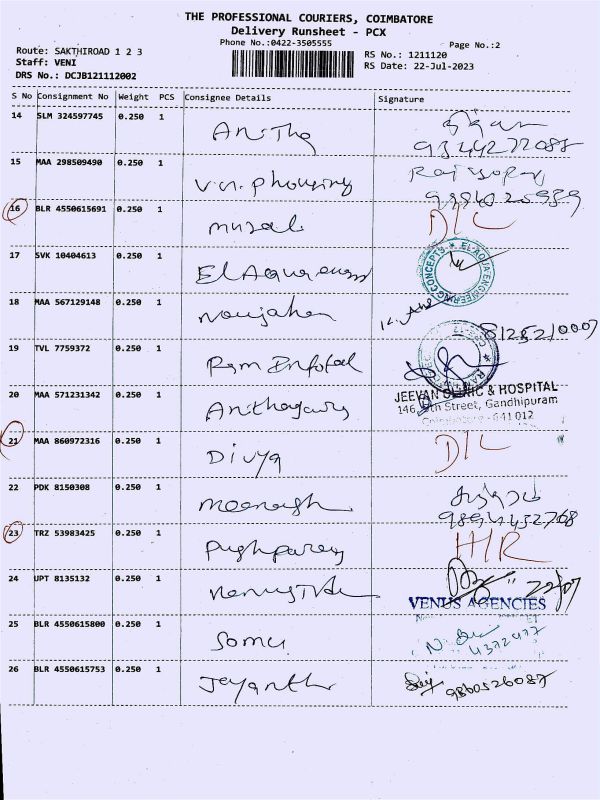 THE PROFESSIONAL COURIERS, COIMBATORE
Delivery Runsheet - PCX
Phone No.:0422-3505555
Page No.:2
Route: SAKTHIROAD 1 2 3
Staff: VENI
DRS No.: DCJB121112002
RS No.: 1211120
RS Date: 22-Jul-2023
S No Consignment No Weight PCS Consignee Details Signature
14 SLM 324597745 0.250 1 Anitha
9344277088
15 MAA 298509490 0.250 1
16 BLR 4550615691 0.250 1 D/L
17 SVK 10404613 0.250 1 El Aqua
EL AQUA ENGINEERING CONCEPTS
18 MAA 567129148 0.250 1 Noujahan
19 TVL 7759372 0.250 1 Ram Infotal
20 MAA 571231342 0.250 1
JEEVAN CLINIC & HOSPITAL
146, Street, Gandhipuram
Coimbatore - 641 012
21 MAA 860972316 0.250 1 Divya D/L
22 PDK 8150308 0.250 1
23 TRZ 53983425 0.250 1
24 UPT 8135132 0.250 1
VENUS AGENCIES
25 BLR 4550615800 0.250 1 Somu
26 BLR 4550615753 0.250 1 Jeyanthi 9860526087